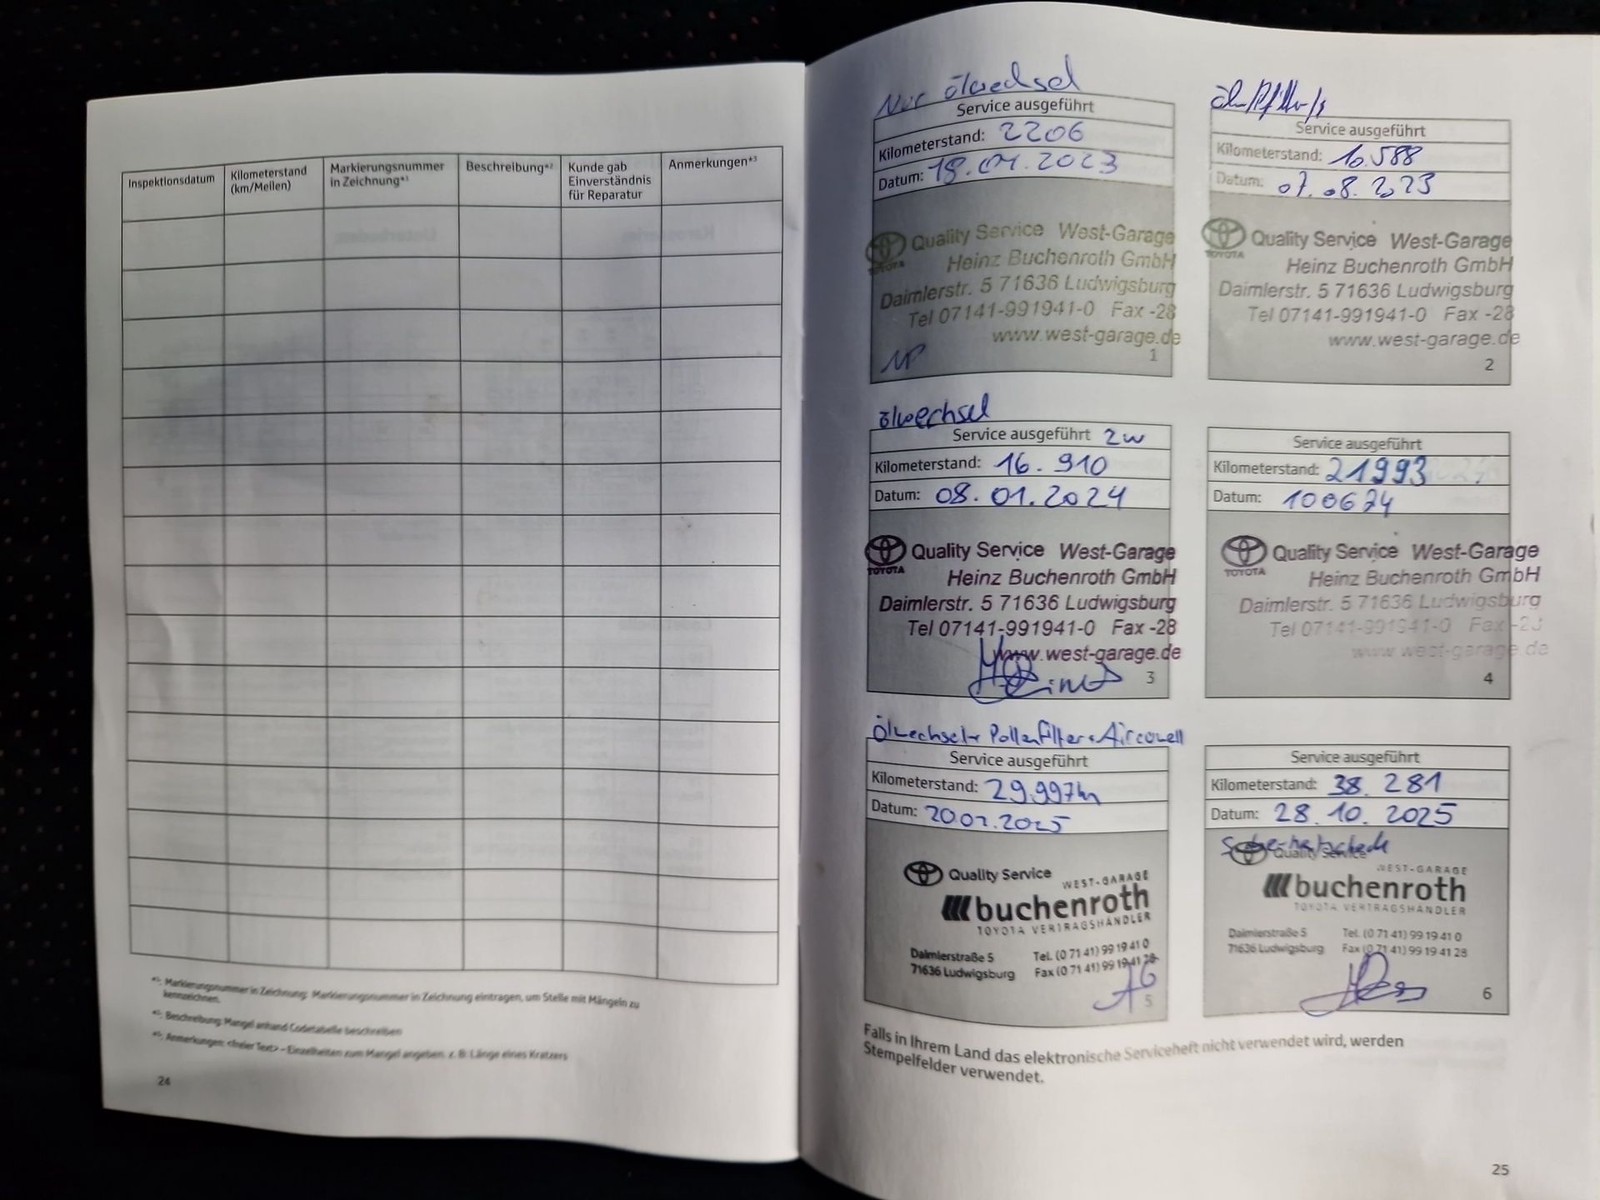 Inspektionsdatum
Kilometerstand
(km/Meilen)
Markierungsnummer
in Zeichnung*¹
Beschreibung*²
Kunde gab
Einverständnis
für Reparatur
Anmerkungen*³
*¹: Markierungsnummer in Zeichnung: Markierungsnummer in Zeichnung eintragen, um Stelle mit Mängeln zu
kennzeichnen.
*²: Beschreibung: Mangel anhand Codetabelle beschreiben
*³: Anmerkungen: <freier Text> – Einzelheiten zum Mangel angeben. z. B. Länge eines Kratzers
24
Nur Ölwechsel
Service ausgeführt
Kilometerstand: 2206
Datum: 18.01.2023
TOYOTA
Quality Service West-Garage
Heinz Buchenroth GmbH
Daimlerstr. 5 71636 Ludwigsburg
Tel 07141-991941-0 Fax -28
www.west-garage.de
1
Service ausgeführt
Kilometerstand: 10.588
Datum: 07.08.2023
TOYOTA
Quality Service West-Garage
Heinz Buchenroth GmbH
Daimlerstr. 5 71636 Ludwigsburg
Tel 07141-991941-0 Fax -28
www.west-garage.de
2
Ölwechsel
Service ausgeführt 2w
Kilometerstand: 16.910
Datum: 08.01.2024
TOYOTA
Quality Service West-Garage
Heinz Buchenroth GmbH
Daimlerstr. 5 71636 Ludwigsburg
Tel 07141-991941-0 Fax -28
www.west-garage.de
3
Service ausgeführt
Kilometerstand: 21993
Datum: 100624
TOYOTA
Quality Service West-Garage
Heinz Buchenroth GmbH
Daimlerstr. 5 71636 Ludwigsburg
Tel 07141-991941-0 Fax -28
www.west-garage.de
4
Ölwechsel + Pollenfilter + Aircowell
Service ausgeführt
Kilometerstand: 29.997km
Datum: 20.02.2025
Quality Service
WEST-GARAGE
buchenroth
TOYOTA VERTRAGSHÄNDLER
Daimlerstraße 5
71636 Ludwigsburg
Tel. (0 71 41) 99 19 41 0
Fax (0 71 41) 99 19 41 28
5
Service ausgeführt
Kilometerstand: 38.281
Datum: 28.10.2025
Quality Service
WEST-GARAGE
buchenroth
TOYOTA VERTRAGSHÄNDLER
Daimlerstraße 5
71636 Ludwigsburg
Tel. (0 71 41) 99 19 41 0
Fax (0 71 41) 99 19 41 28
6
Falls in Ihrem Land das elektronische Serviceheft nicht verwendet wird, werden
Stempelfelder verwendet.
25